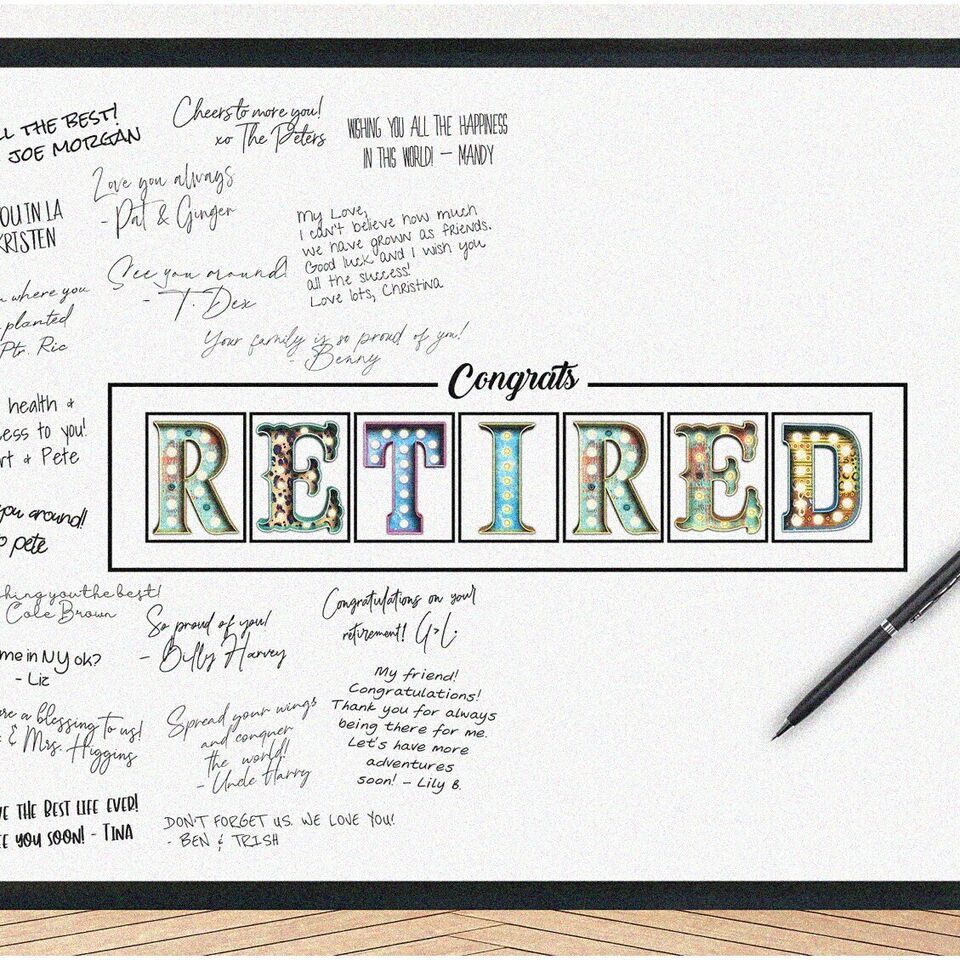 LL THE BEST!
JOE MORGAN
Cheers to more you!
xo The Peters
WISHING YOU ALL THE HAPPINESS
IN THIS WORLD! — MANDY
Love you always
- Pat & Ginger
OU IN LA
KRISTEN
My Love,
I can't believe how much
we have grown as friends.
Good luck and I wish you
all the success!
Love lots, Christina
See you around!
- T. Dex
where you
planted
Ptr. Ric
Your family is so proud of you!
- Benny
Congrats
RETIRED
health &
ess to you!
rt & Pete
you around!!
pete
hing you the best!
Cole Brown
So proud of you!
- Billy Harvey
Congratulations on your
retirement! G>L:
me in NY ok?
- Liz
My friend!
Congratulations!
Thank you for always
being there for me.
Let's have more
adventures
soon! – Lily B.
re a blessing to us!
& Mrs. Higgins
Spread your wings
and conquer
the world!
- Uncle Harry
VE THE BEST LIFE EVER!
EE YOU SOON! - TINA
DON'T FORGET US. WE LOVE YOU!
- BEN & TRISH